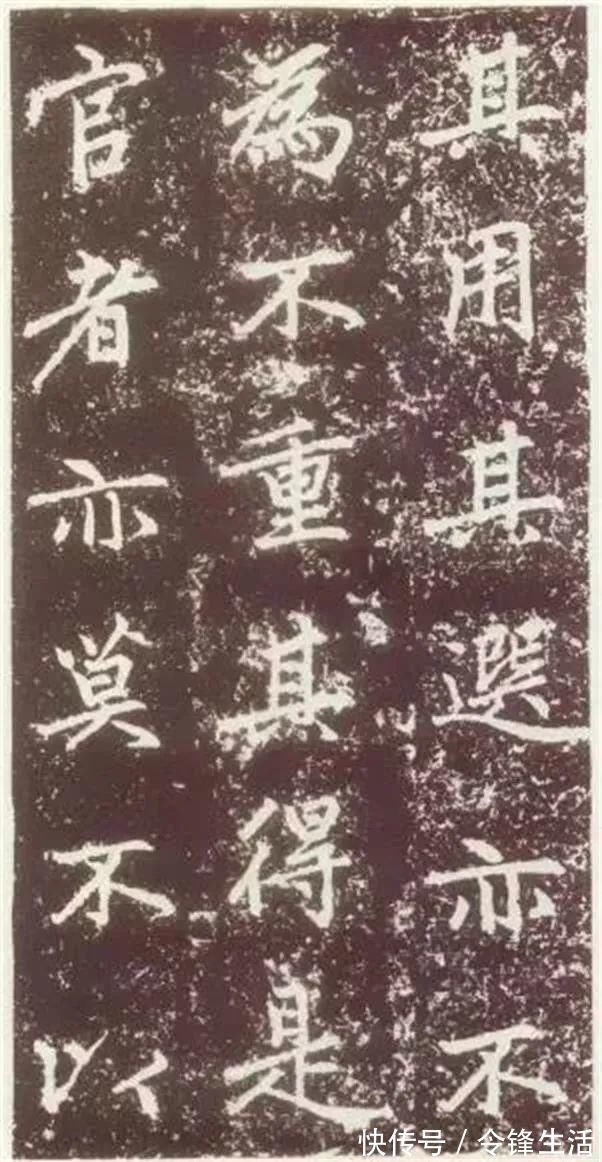 其用其選亦不
為不重其得是
官者亦莫不以
快传号/令锋生活